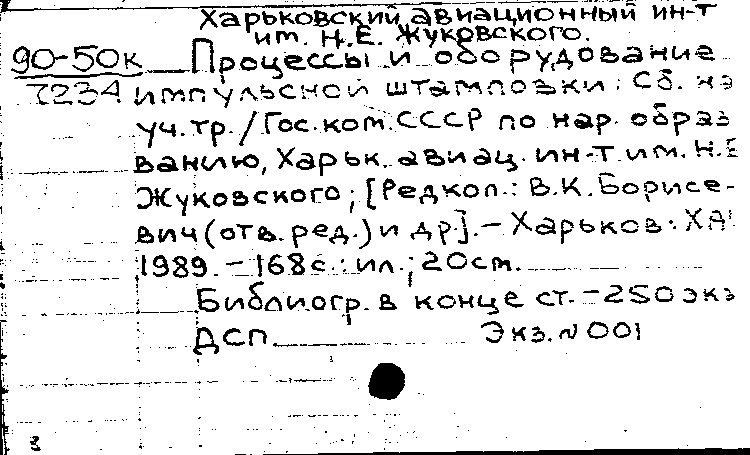 Харьковский авиационный ин-т
им. Н.Е. Жуковского.
90-50к Процессы и оборудование
7234 импульсной штамповки: Сб. на
уч.тр./Гос.ком.СССР по нар. образ
ванию, Харьк. авиац. ин-т им. Н.Е
Жуковского; [Редкол.: В.К. Борисе-
вич (отв. ред.) и др.]. - Харьков: ХА
1989. - 168с.: ил.; 20см.
Библиогр. в конце ст. - 250 экз
ДСП Экз. N 001
3